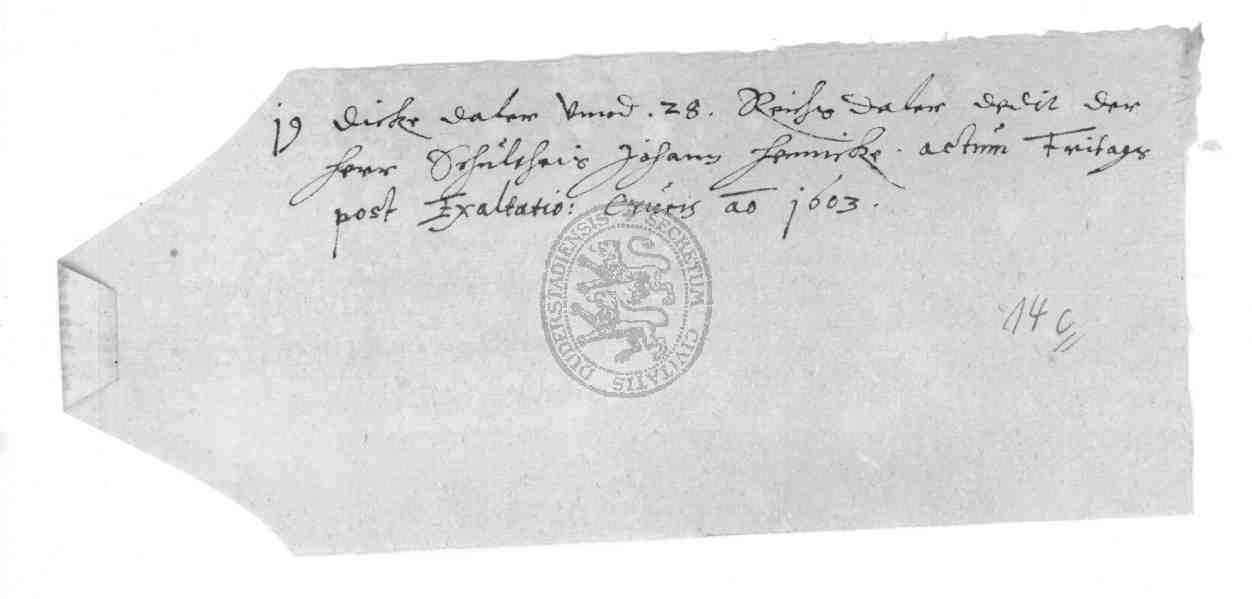 dicke daler vnnd . 28 . Reichs daler dedit der
herr Schultheis Johann Hennicke . actum Fritags
post Exaltatio: Crucis ao 1603 .
SECRETUM CIVITATIS DUDERSTADIENSIS
14 c